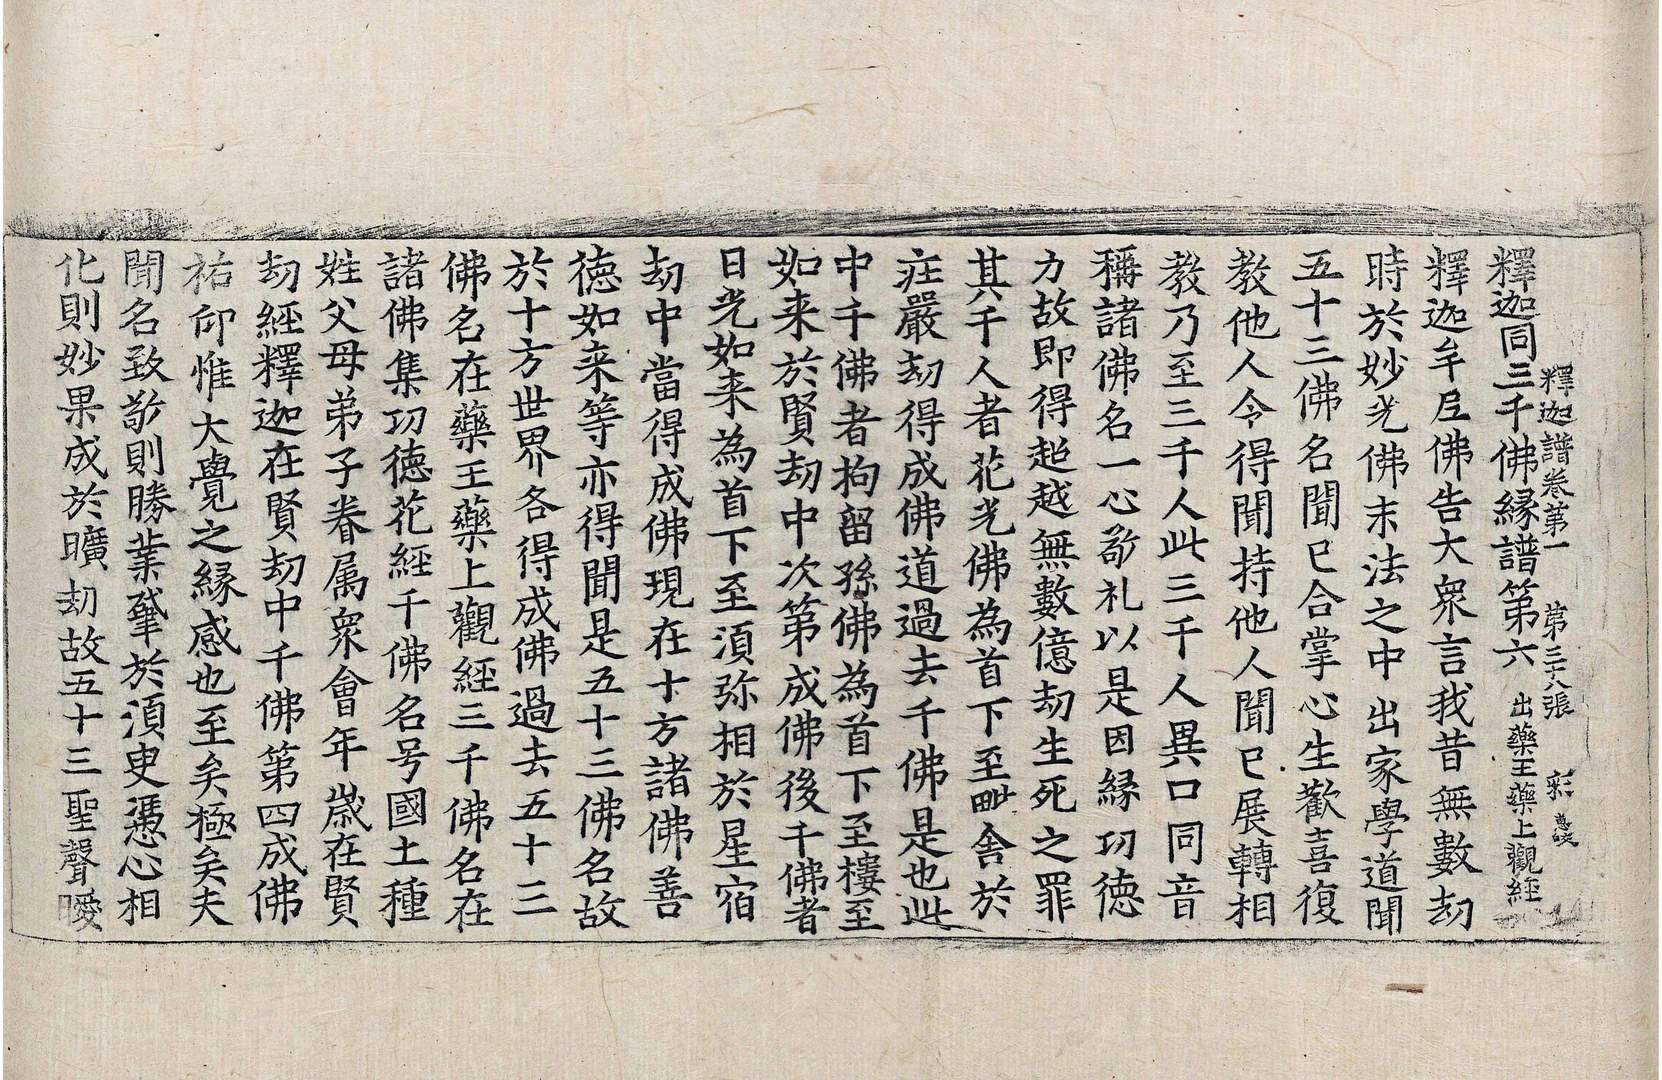 釋迦譜卷第一 第三十八張 彩
釋迦同三千佛緣譜第六 出藥王藥上觀經
釋迦牟尼佛告大衆言我昔無數劫
時於妙光佛末法之中出家學道聞
五十三佛名聞已合掌心生歡喜復
教他人令得聞持他人聞已展轉相
教乃至三千人此三千人異口同音
稱諸佛名一心敬礼以是因緣功德
力故即得超越無數億劫生死之罪
其千人者花光佛為首下至毗舍於
莊嚴劫得成佛道過去千佛是也此
中千佛者拘留孫佛為首下至樓至
如来於賢劫中次第成佛後千佛者
日光如来為首下至須弥相於星宿
劫中當得成佛現在十方諸佛善
德如来等亦得聞是五十三佛名故
於十方世界各得成佛過去五十三
佛名在藥王藥上觀經三千佛名在
諸佛集功德花經千佛名号國土種
姓父母弟子眷属衆會年歲在賢
劫經釋迦在賢劫中千佛第四成佛
祐仰惟大覺之緣感也至矣極矣夫
聞名致敬則勝業肇於須臾憑心相
化則妙果成於曠劫故五十三聖聲曖